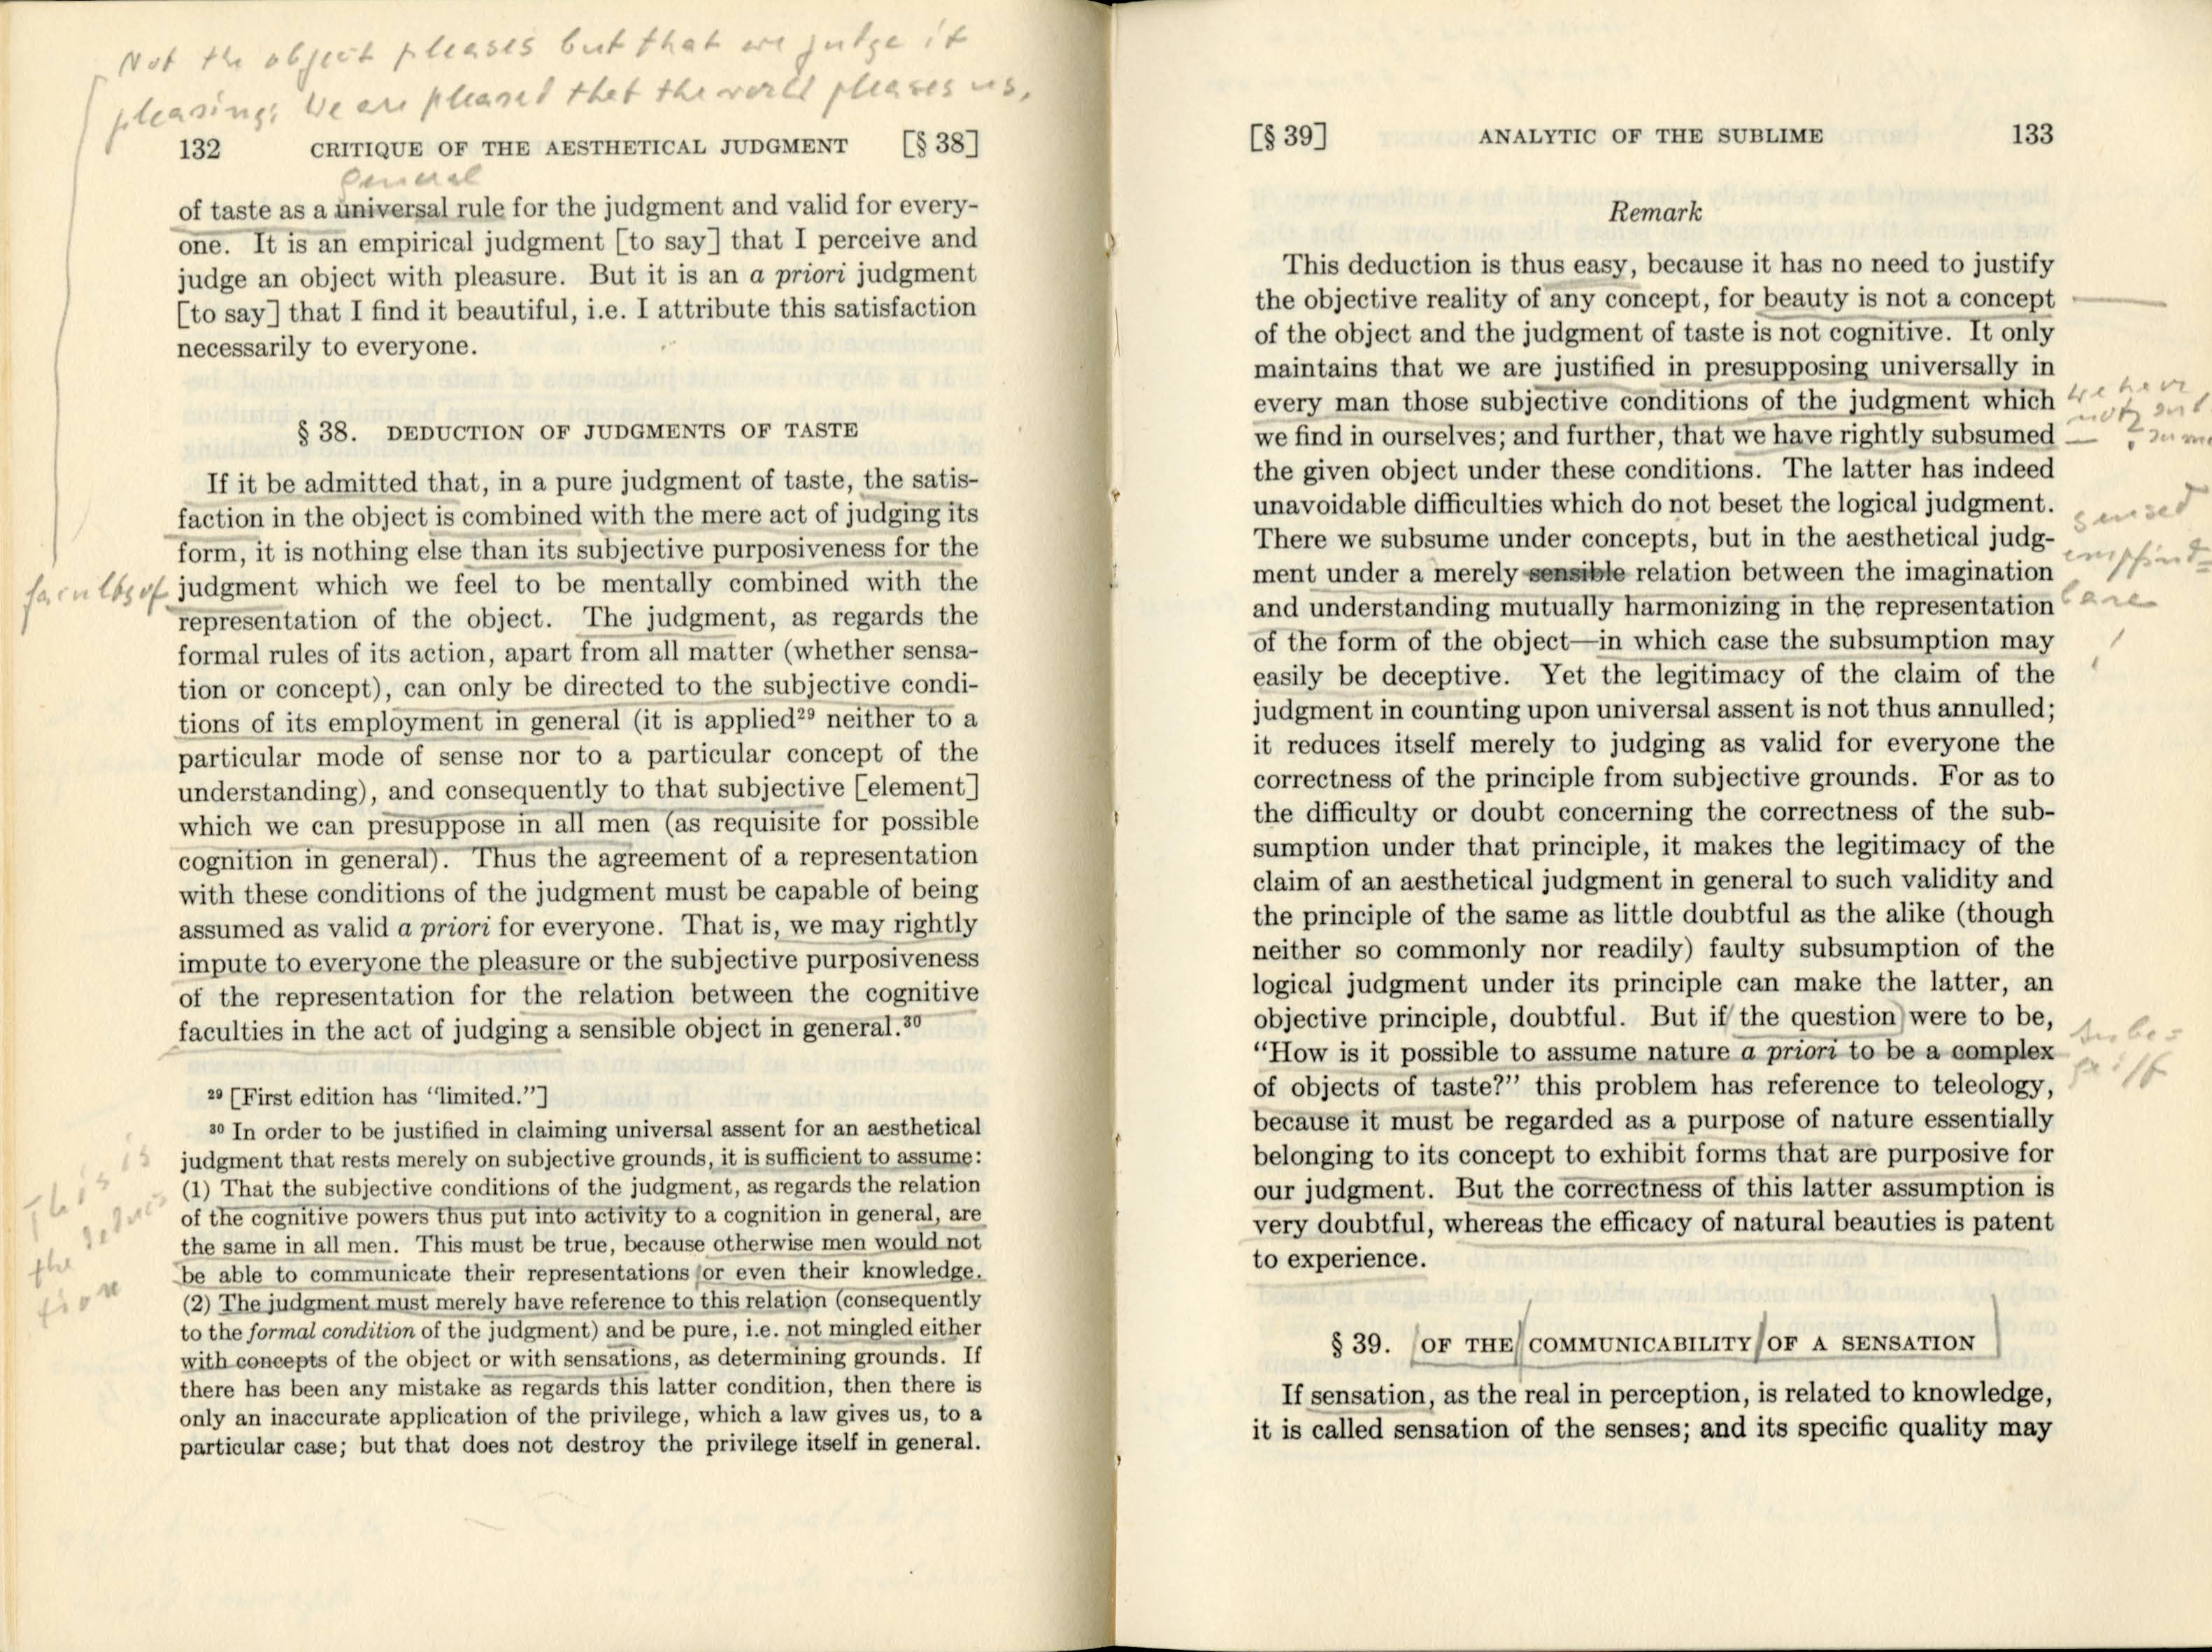 Not the object pleases but that we judge it
pleasing: We are pleased that the world pleases us.
132 CRITIQUE OF THE AESTHETICAL JUDGMENT [§ 38]
general
of taste as a universal rule for the judgment and valid for every-
one. It is an empirical judgment [to say] that I perceive and
judge an object with pleasure. But it is an a priori judgment
[to say] that I find it beautiful, i.e. I attribute this satisfaction
necessarily to everyone.
§ 38. DEDUCTION OF JUDGMENTS OF TASTE
If it be admitted that, in a pure judgment of taste, the satis-
faction in the object is combined with the mere act of judging its
form, it is nothing else than its subjective purposiveness for the
faculty of judgment which we feel to be mentally combined with the
representation of the object. The judgment, as regards the
formal rules of its action, apart from all matter (whether sensa-
tion or concept), can only be directed to the subjective condi-
tions of its employment in general (it is applied²⁹ neither to a
particular mode of sense nor to a particular concept of the
understanding), and consequently to that subjective [element]
which we can presuppose in all men (as requisite for possible
cognition in general). Thus the agreement of a representation
with these conditions of the judgment must be capable of being
assumed as valid a priori for everyone. That is, we may rightly
impute to everyone the pleasure or the subjective purposiveness
of the representation for the relation between the cognitive
faculties in the act of judging a sensible object in general.³⁰
²⁹ [First edition has "limited."]
³⁰ In order to be justified in claiming universal assent for an aesthetical
judgment that rests merely on subjective grounds, it is sufficient to assume:
(1) That the subjective conditions of the judgment, as regards the relation
of the cognitive powers thus put into activity to a cognition in general, are
the same in all men. This must be true, because otherwise men would not
be able to communicate their representations or even their knowledge.
(2) The judgment must merely have reference to this relation (consequently
to the formal condition of the judgment) and be pure, i.e. not mingled either
with concepts of the object or with sensations, as determining grounds. If
there has been any mistake as regards this latter condition, then there is
only an inaccurate application of the privilege, which a law gives us, to a
particular case; but that does not destroy the privilege itself in general.
This is
the deduc
tion
[§ 39] ANALYTIC OF THE SUBLIME 133
Remark
This deduction is thus easy, because it has no need to justify
the objective reality of any concept, for beauty is not a concept
of the object and the judgment of taste is not cognitive. It only
maintains that we are justified in presupposing universally in
every man those subjective conditions of the judgment which
we find in ourselves; and further, that we have rightly subsumed
the given object under these conditions. The latter has indeed
unavoidable difficulties which do not beset the logical judgment.
There we subsume under concepts, but in the aesthetical judg-
ment under a merely sensible relation between the imagination
and understanding mutually harmonizing in the representation
of the form of the object—in which case the subsumption may
easily be deceptive. Yet the legitimacy of the claim of the
judgment in counting upon universal assent is not thus annulled;
it reduces itself merely to judging as valid for everyone the
correctness of the principle from subjective grounds. For as to
the difficulty or doubt concerning the correctness of the sub-
sumption under that principle, it makes the legitimacy of the
claim of an aesthetical judgment in general to such validity and
the principle of the same as little doubtful as the alike (though
neither so commonly nor readily) faulty subsumption of the
logical judgment under its principle can make the latter, an
objective principle, doubtful. But if the question were to be,
"How is it possible to assume nature a priori to be a complex
of objects of taste?" this problem has reference to teleology,
because it must be regarded as a purpose of nature essentially
belonging to its concept to exhibit forms that are purposive for
our judgment. But the correctness of this latter assumption is
very doubtful, whereas the efficacy of natural beauties is patent
to experience.
we have
not sub
sume
sensed
empfind=
bare
Inbe=
griff
§ 39. OF THE COMMUNICABILITY OF A SENSATION
If sensation, as the real in perception, is related to knowledge,
it is called sensation of the senses; and its specific quality may